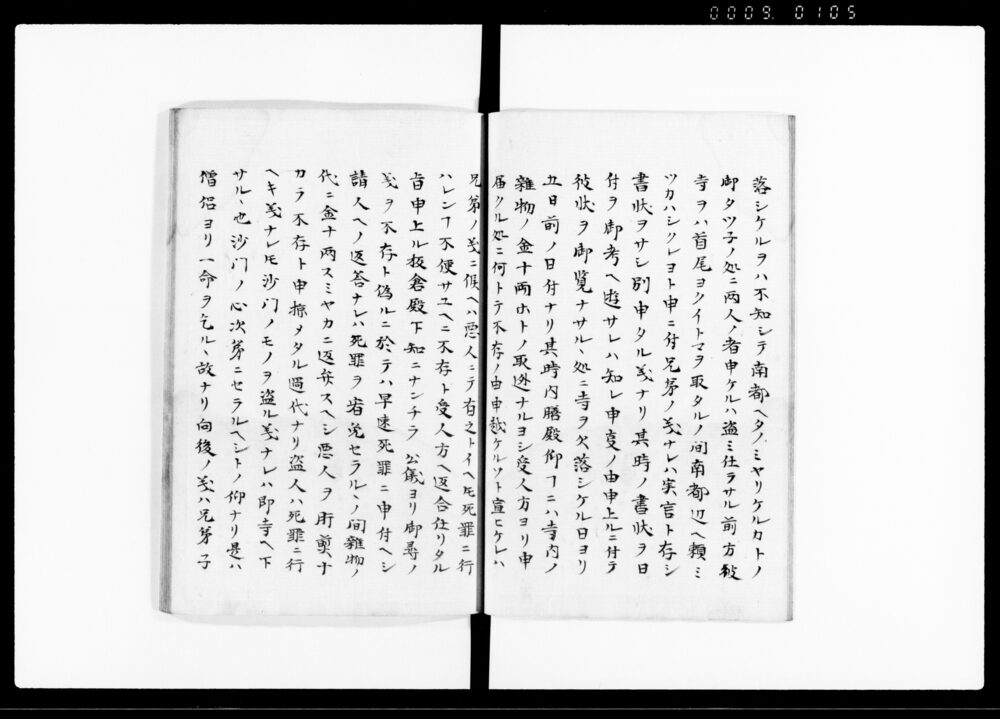 0009 0105
落シケルヲハ不知シテ南都ヘタノミヤリケルカトノ
御タツ子ノ処ニ両人ノ者申ケルハ盗ミ仕ラサル前方彼
寺ヲハ首尾ヨクイトマヲ取タルノ間南都辺ヘ頼ミ
ツカハシクレヨト申ニ付兄弟ノ義ナレハ実言ト存シ
書状ヲサシ別申タル義ナリ其時ノ書状ヲ日
付ヲ御考ヘ遊サレハ知レ申ノ由申上ルニ付テ
彼状ヲ御覧ナサルヽ処ニ寺ヲ欠落シケル日ヨリ
五日前ノ日付ナリ其時内膳殿仰ヿニハ寺内ノ
雑物ノ金十両ホトノ取逃ナルヨシ受人方ヨリ申
届クル処ニ何トテ不存ノ由申越ケルソト宣ヒケレハ
兄弟ノ義ニ候ヘハ悪人ニテ有之トイヘ𪜈死罪ニ行
ハレンヿ不便サユヘニ不存ト受人方ヘ返合仕リタル
旨申上ル板倉殿下知ニナンチラ 公儀ヨリ御尋ノ
義ヲ不存ト偽ルニ於テハ早速死罪ニ申付ヘシ
請人ヘノ返答ナレハ死罪ヲ省免セラルヽノ間雑物ノ
代ニ金十両スミヤカニ返弁スヘシ悪人ヲ所ナ
カラ不存ト申掠メタル過代ナリ盗人ハ死罪ニ行
ヘキ義ナレ𪜈沙門ノモノヲ盗ル義ナレハ即寺ヘ下
サルヽ也沙門ノ心次第ニセラルヘシトノ仰ナリ是ハ
僧侶ヨリ一命ヲ乞ルヽ故ナリ向後ノ義ハ兄弟子